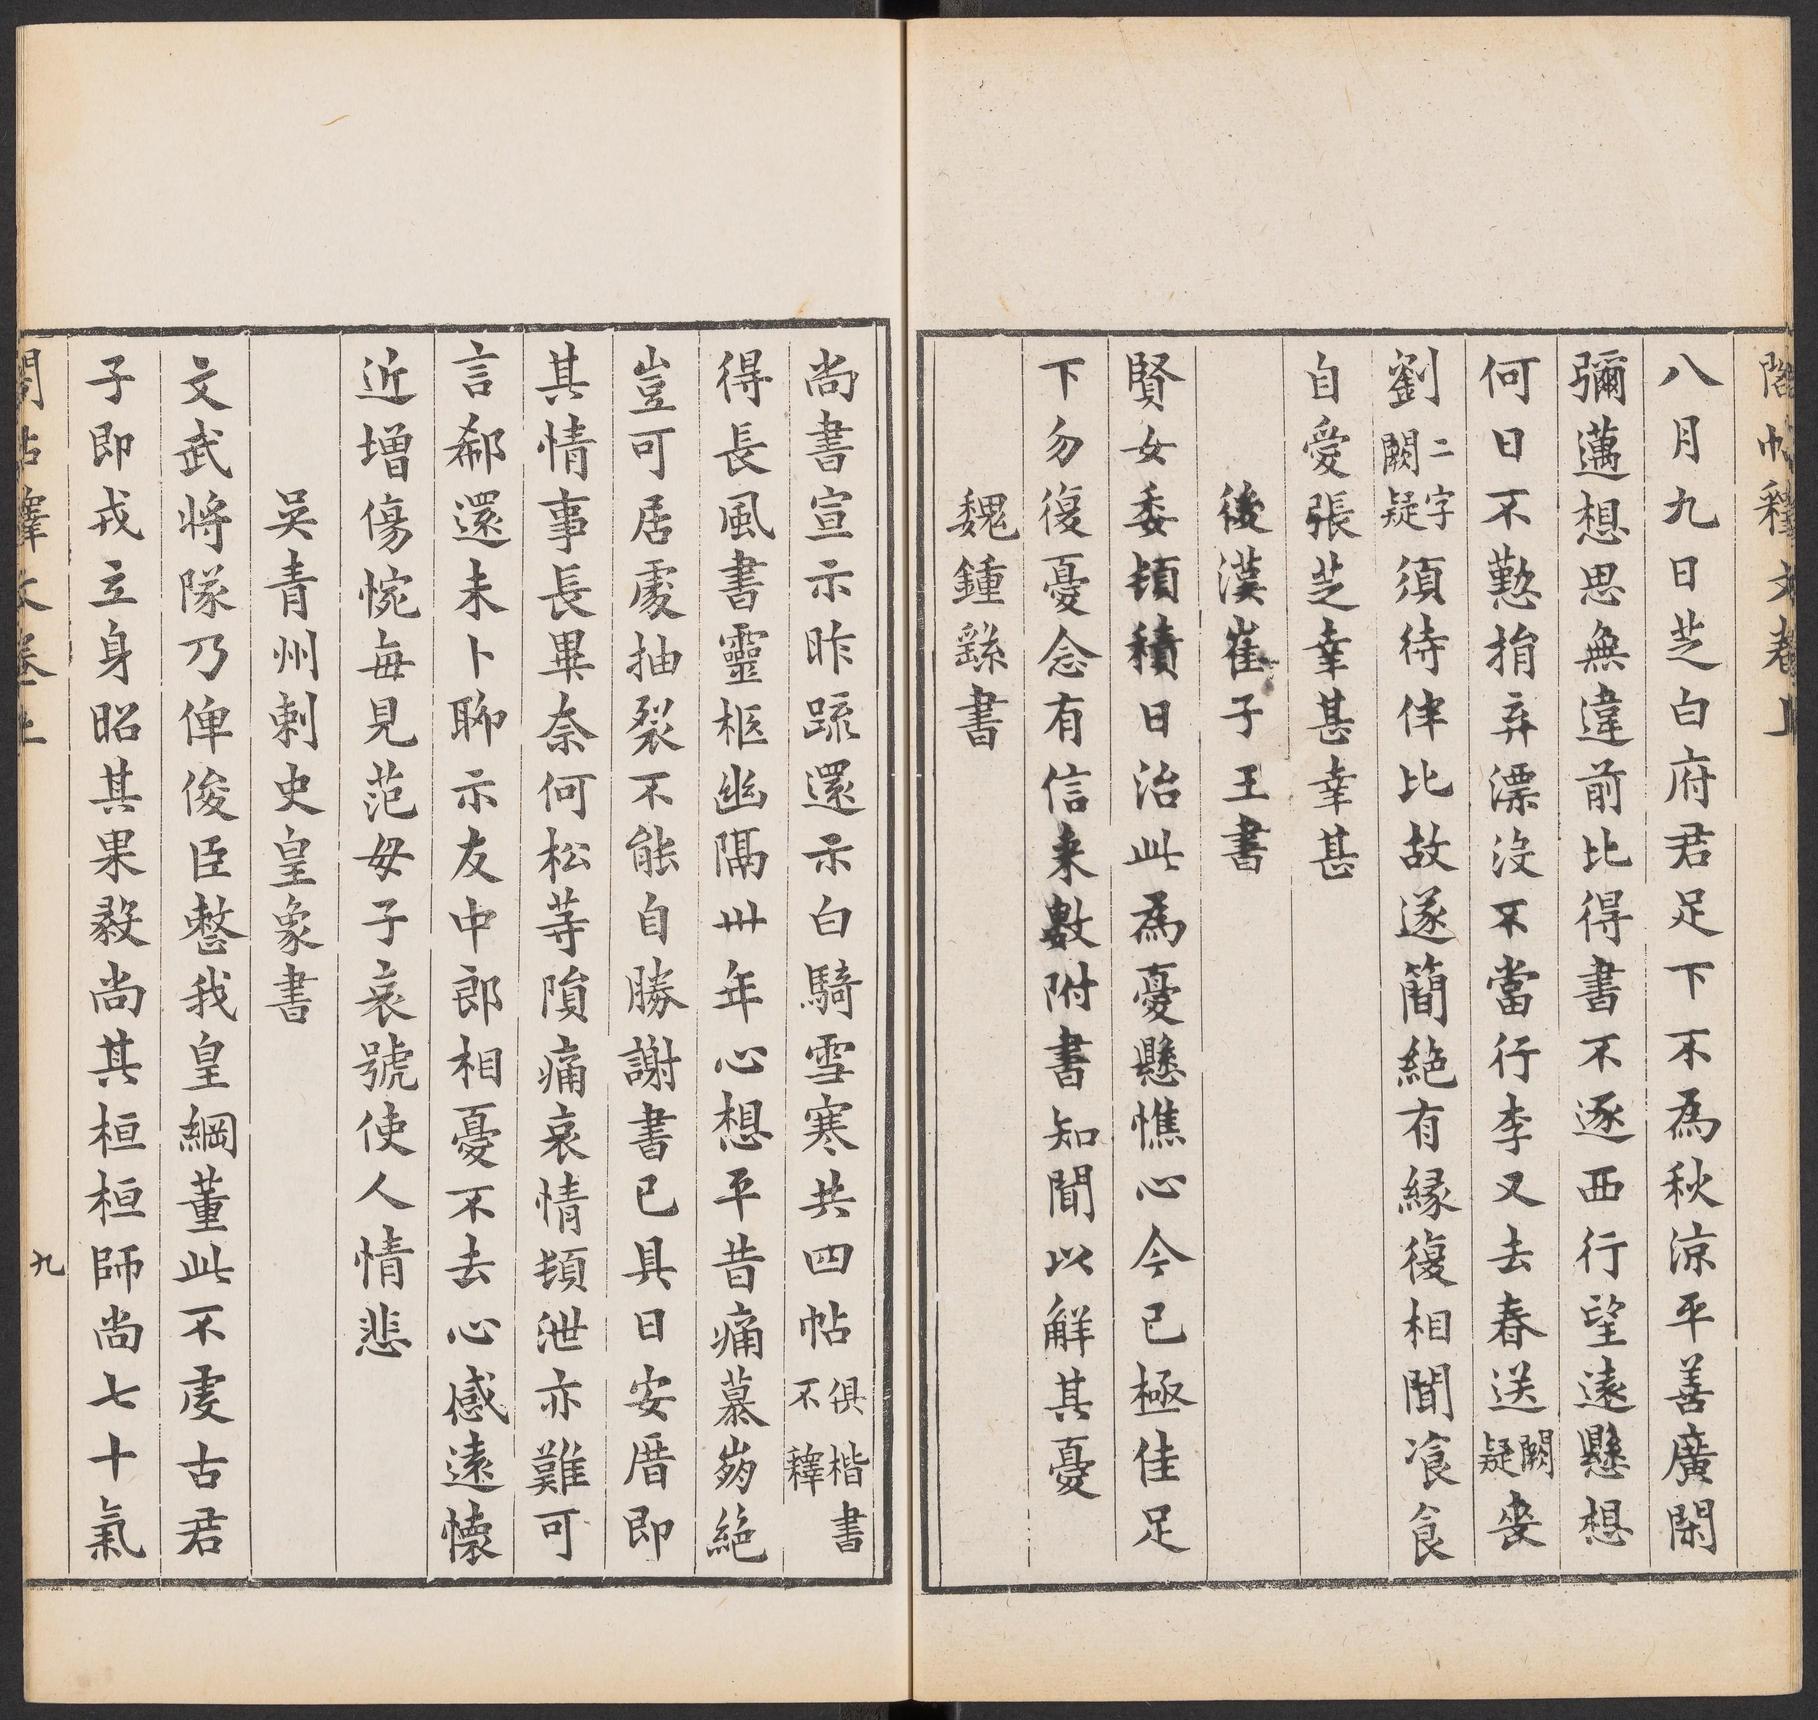 閣帖釋文卷上
八月九日芝白府君足下不為秋涼平善廣閑
彌邁想思無違前比得書不逐西行望遠懸想
何日不懃捐弃漂沒不當行李又去春送闕疑喪
劉二字闕疑須待伴比故遂簡絕有緣復相聞飡食
自愛張芝幸甚幸甚
後漢崔子玉書
賢女委頓積日治此為憂懸憔心今已極佳足
下勿復憂念有信来數附書知聞以解其憂
魏鍾繇書
尚書宣示昨疏還示白騎雪寒共四帖俱楷書不釋
得長風書靈柩幽隔卅年心想平昔痛慕崩絕
豈可居處抽裂不能自勝謝書已具日安厝即
其情事長畢奈何松等隕痛哀情頓泄亦難可
言郗還未卜聊示友中郎相憂不去心感遠懷
近增傷惋每見范母子哀號使人情悲
吳青州刺史皇象書
文武將隊乃俾俊臣整我皇綱董此不虔古君
子即戎立身昭其果毅尚其桓桓師尚七十氣
閣帖釋文卷上
九